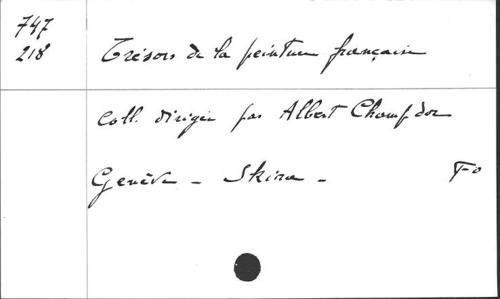 747
218
Trésors de la peinture française
Coll. dirigée par Albert Champdor
Genève - Skira -
F°